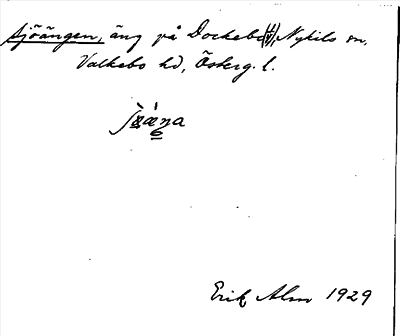 Sjöängen, äng på Dockebo, Nykils sn.
Valkebo hd, Österg. l.
Erik Alm 1929